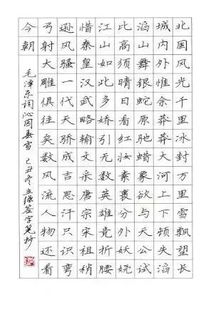 北国风光千里冰封万里雪飘望长
城内外惟余莽莽大河上下顿失滔
滔山舞银蛇原驰蜡象欲与天公试
比高须晴日看红装素裹分外妖娆
江山如此多娇引无数英雄竞折腰
惜秦皇汉武略输文采唐宗宋祖稍
逊风骚一代天骄成吉思汗只识弯
弓射大雕俱往矣数风流人物还看
今朝
毛泽东词沁园春雪 己丑年 签字笔抄